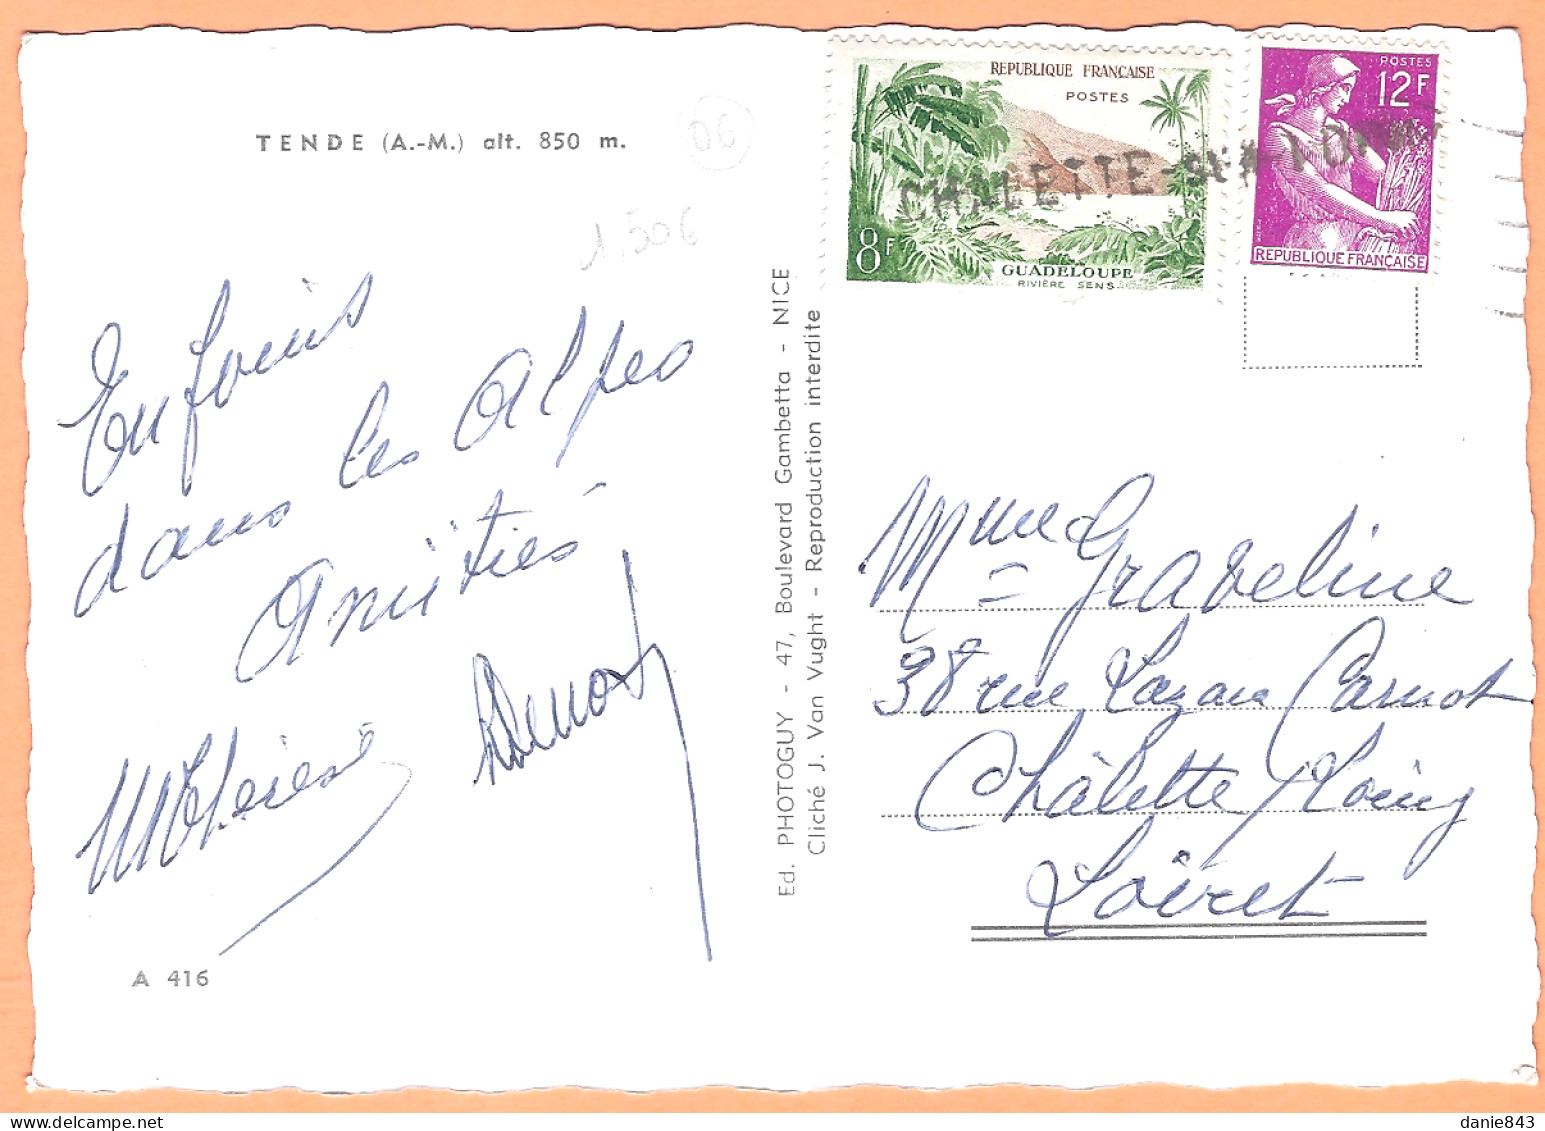 TENDE (A.-M.) alt. 850 m.
06
1,50€
En fouis
dans les Alpes
Amitiés
MThérèse
Ed. PHOTOGUY - 47, Boulevard Gambetta - NICE
Cliché J. Van Vught - Reproduction interdite
A 416
REPUBLIQUE FRANÇAISE
POSTES
8F
GUADELOUPE
RIVIÈRE SENS
POSTES
12F
REPUBLIQUE FRANÇAISE
CHALETTE-SUR-LOING
Mme Graveline
38 rue Lazare Carnot
Châlette s/Loing
Loiret
danie843